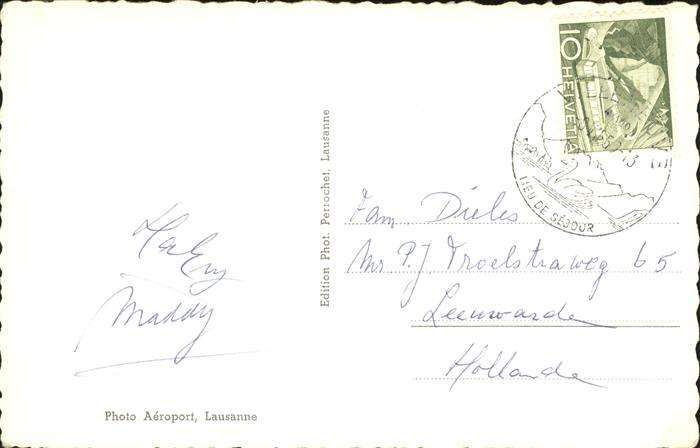 10 HELVETIA
LIEU DE SÉJOUR
Edition Phot. Perrochet, Lausanne
Fam. Dieles
Mr P.J Troelstraweg 65
Leeuwarde
Hollande
Maddy
Photo Aéroport, Lausanne